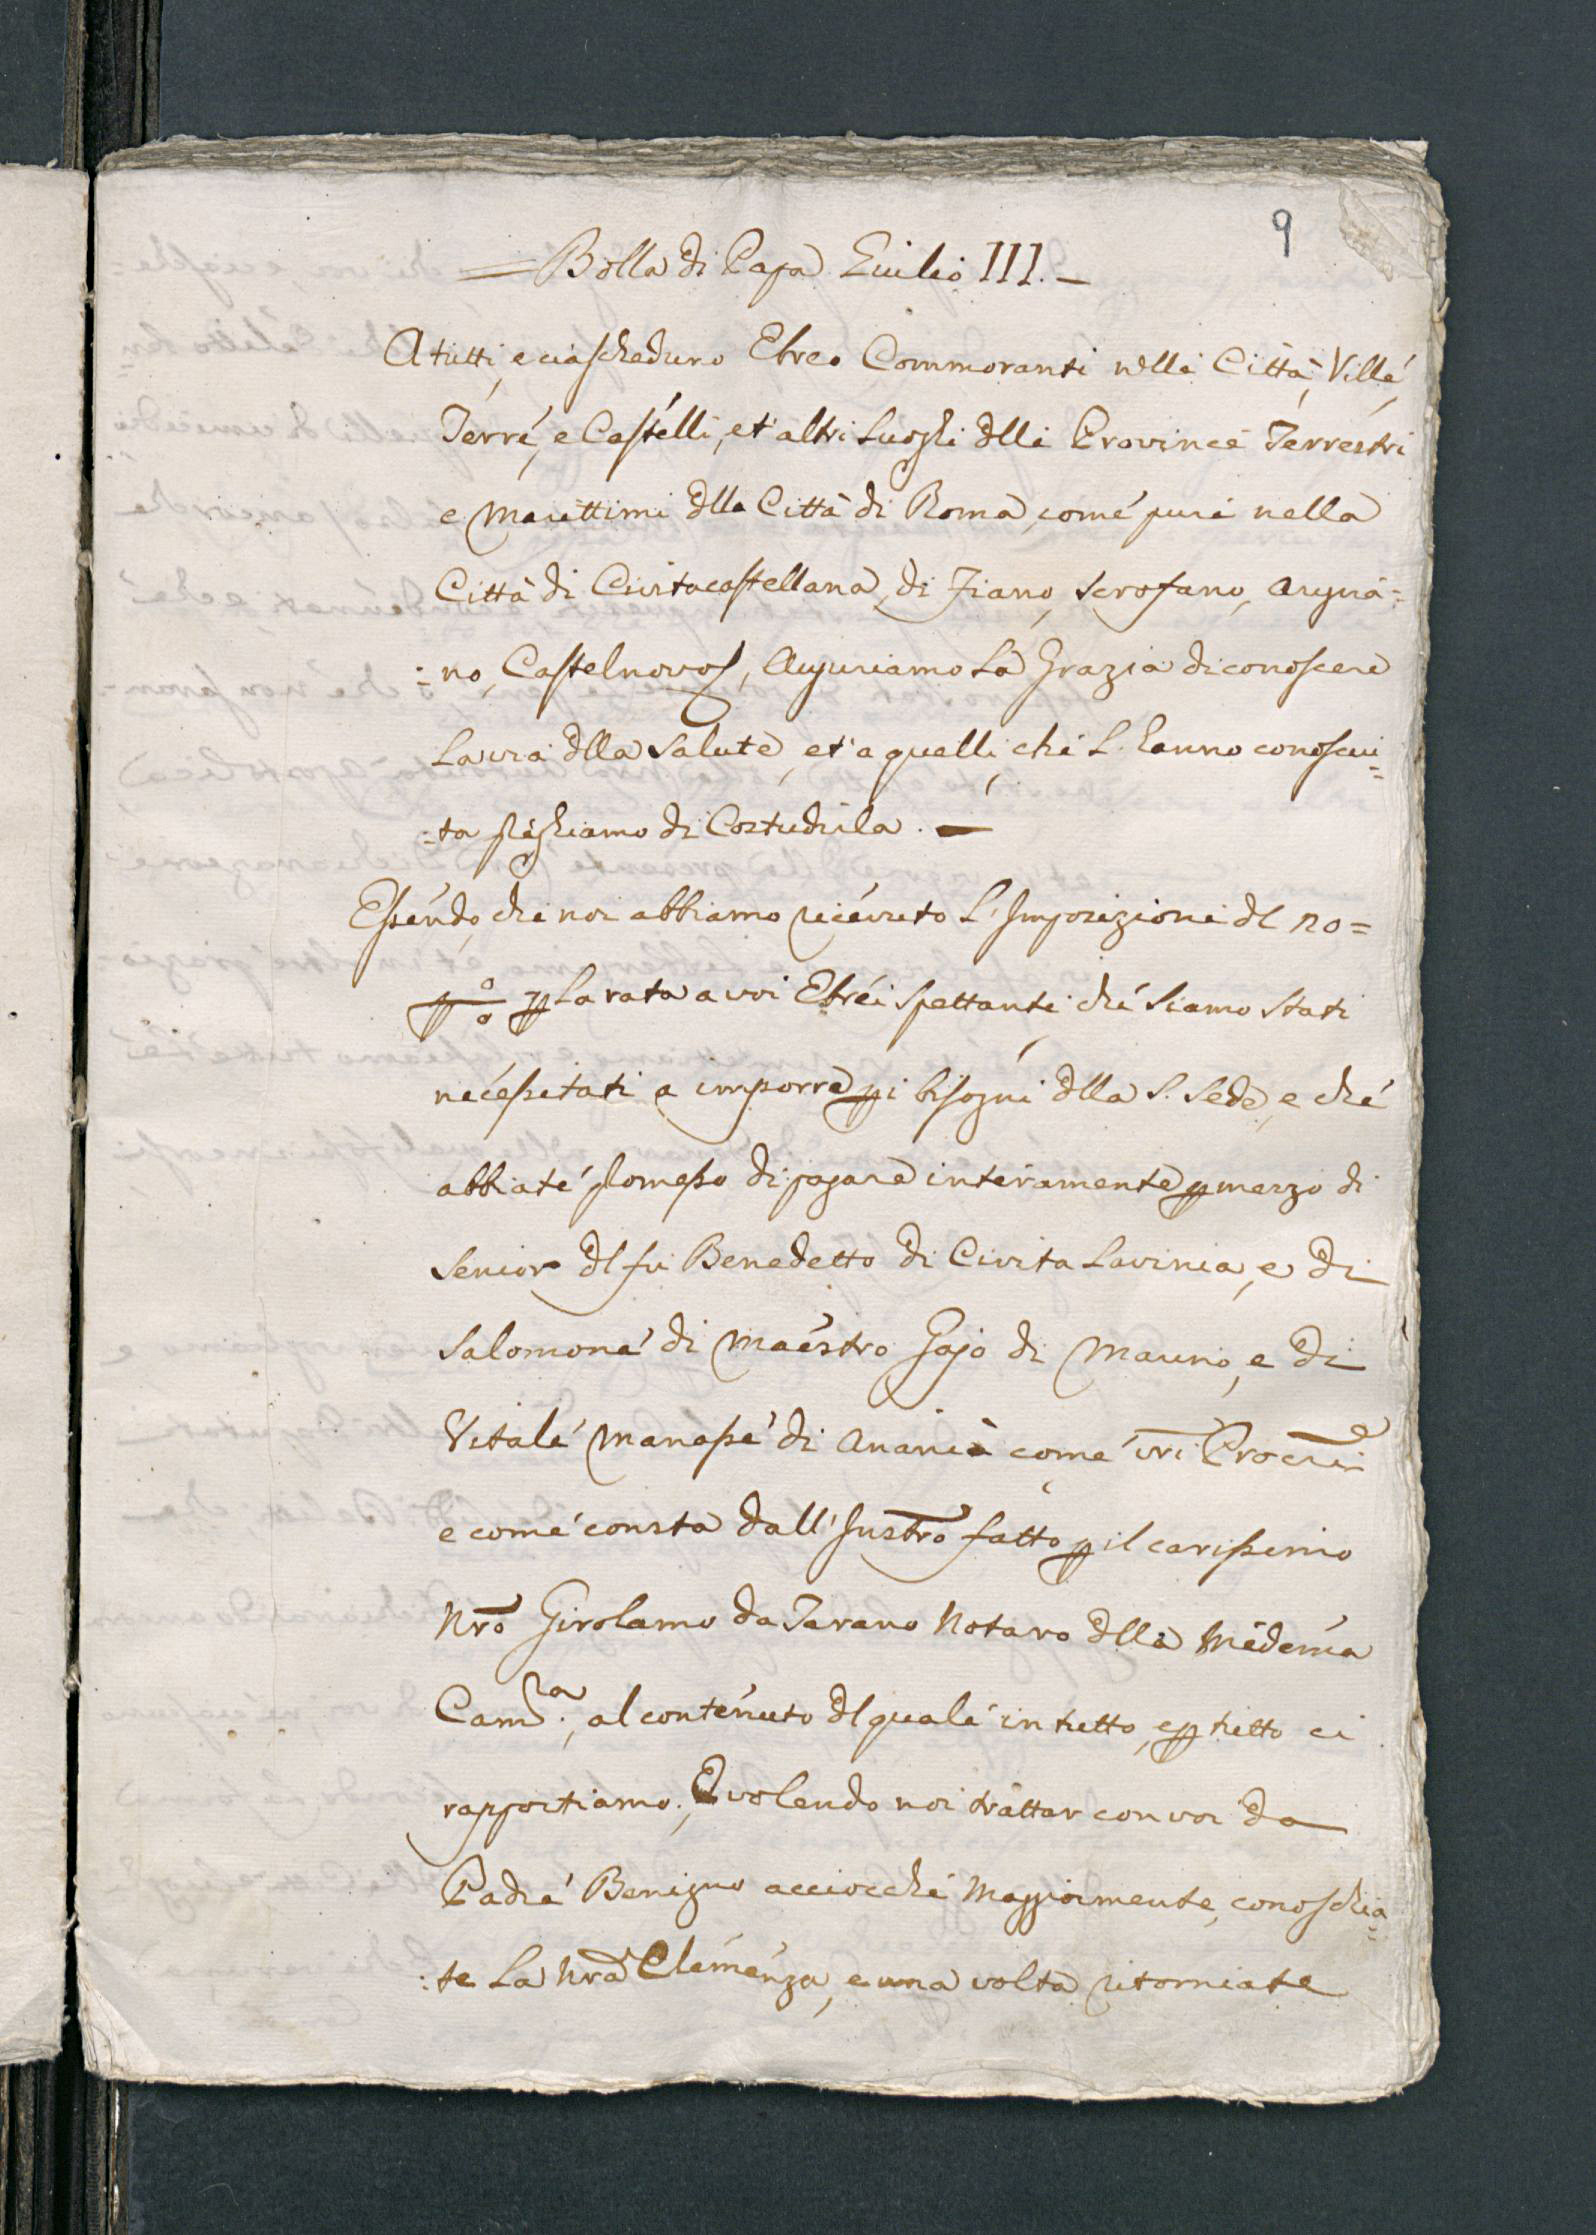 9
= Bolla di Papa Giulio III. —
A tutti, e ciascheduno Ebreo Commoranti nelle Città, Ville,
Terre, e Castelli, et altri Luoghi dlle Province Terrestri
e Marittimi dlla Città di Roma, come pure nella
Città di Civitacastellana, di Fiano, Scrofano, Arigna=
:=no, Castelnovo, Auguriamo La Grazia di conoscere
La via dlla Salute, et a quelli, che L'hanno conosciu=
:ta preghiamo di Costudirla. —
Essendo, che noi abbiamo ricevuto L'Imposizione dl 20=
p La rata a voi Ebrei spettante, che siamo stati
necessitati a imporre p i bisogni dlla S. Sede, e che
abbiate promesso di pagare interamente p mezzo di
Senior dl fu Benedetto di Civita Lavinia, e di
Salomone di Maestro Gajo di Marino, e di
Vitale Manasse di Anania come vri Procri
e come consta dall' Instro fatto p il carissimo
Nro Girolamo da Tarano Notaro dlla Medema
Cam.ra, al contenuto dl quale in tutto, e p tutto ci
rapportiamo. E volendo noi trattar con voi da
Padre Benigno acciocchè Maggiormente, conoschia=
:te La Nra Clemenza, e una volta ritorniate